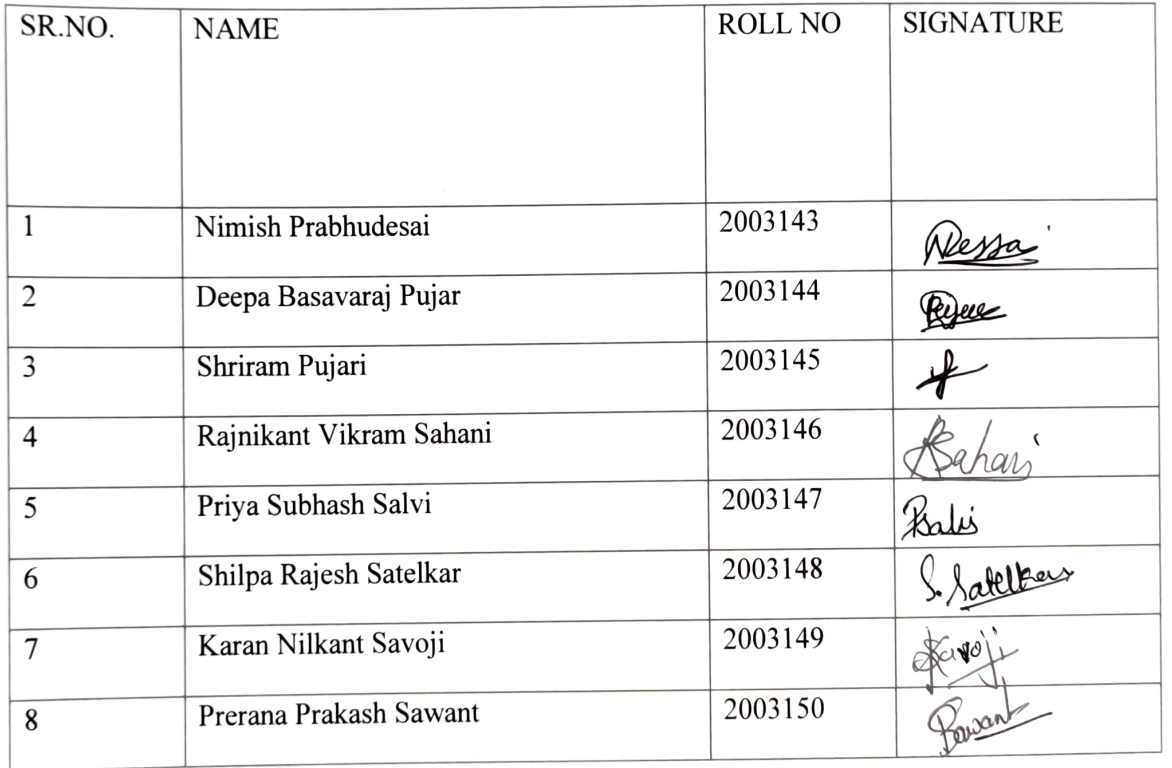 SR.NO. NAME ROLL NO SIGNATURE
1 Nimish Prabhudesai 2003143
2 Deepa Basavaraj Pujar 2003144
3 Shriram Pujari 2003145
4 Rajnikant Vikram Sahani 2003146
5 Priya Subhash Salvi 2003147
6 Shilpa Rajesh Satelkar 2003148 S. Satelkar
7 Karan Nilkant Savoji 2003149
8 Prerana Prakash Sawant 2003150